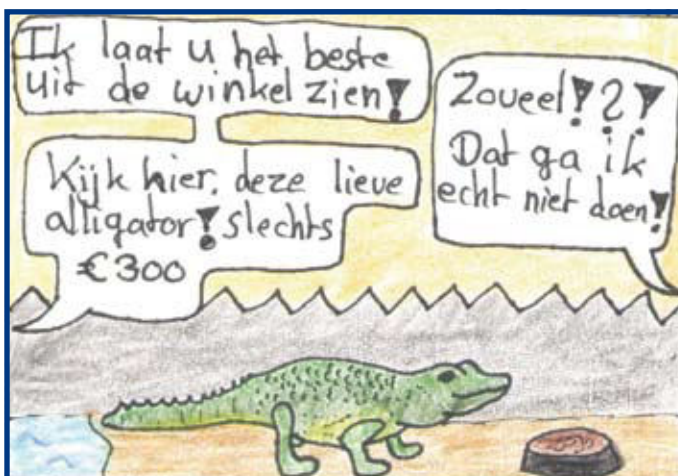 Ik laat u het beste
uit de winkel zien!
Kijk hier, deze lieve
alligator! slechts
€300
Zoveel!?!
Dat ga ik
echt niet doen!